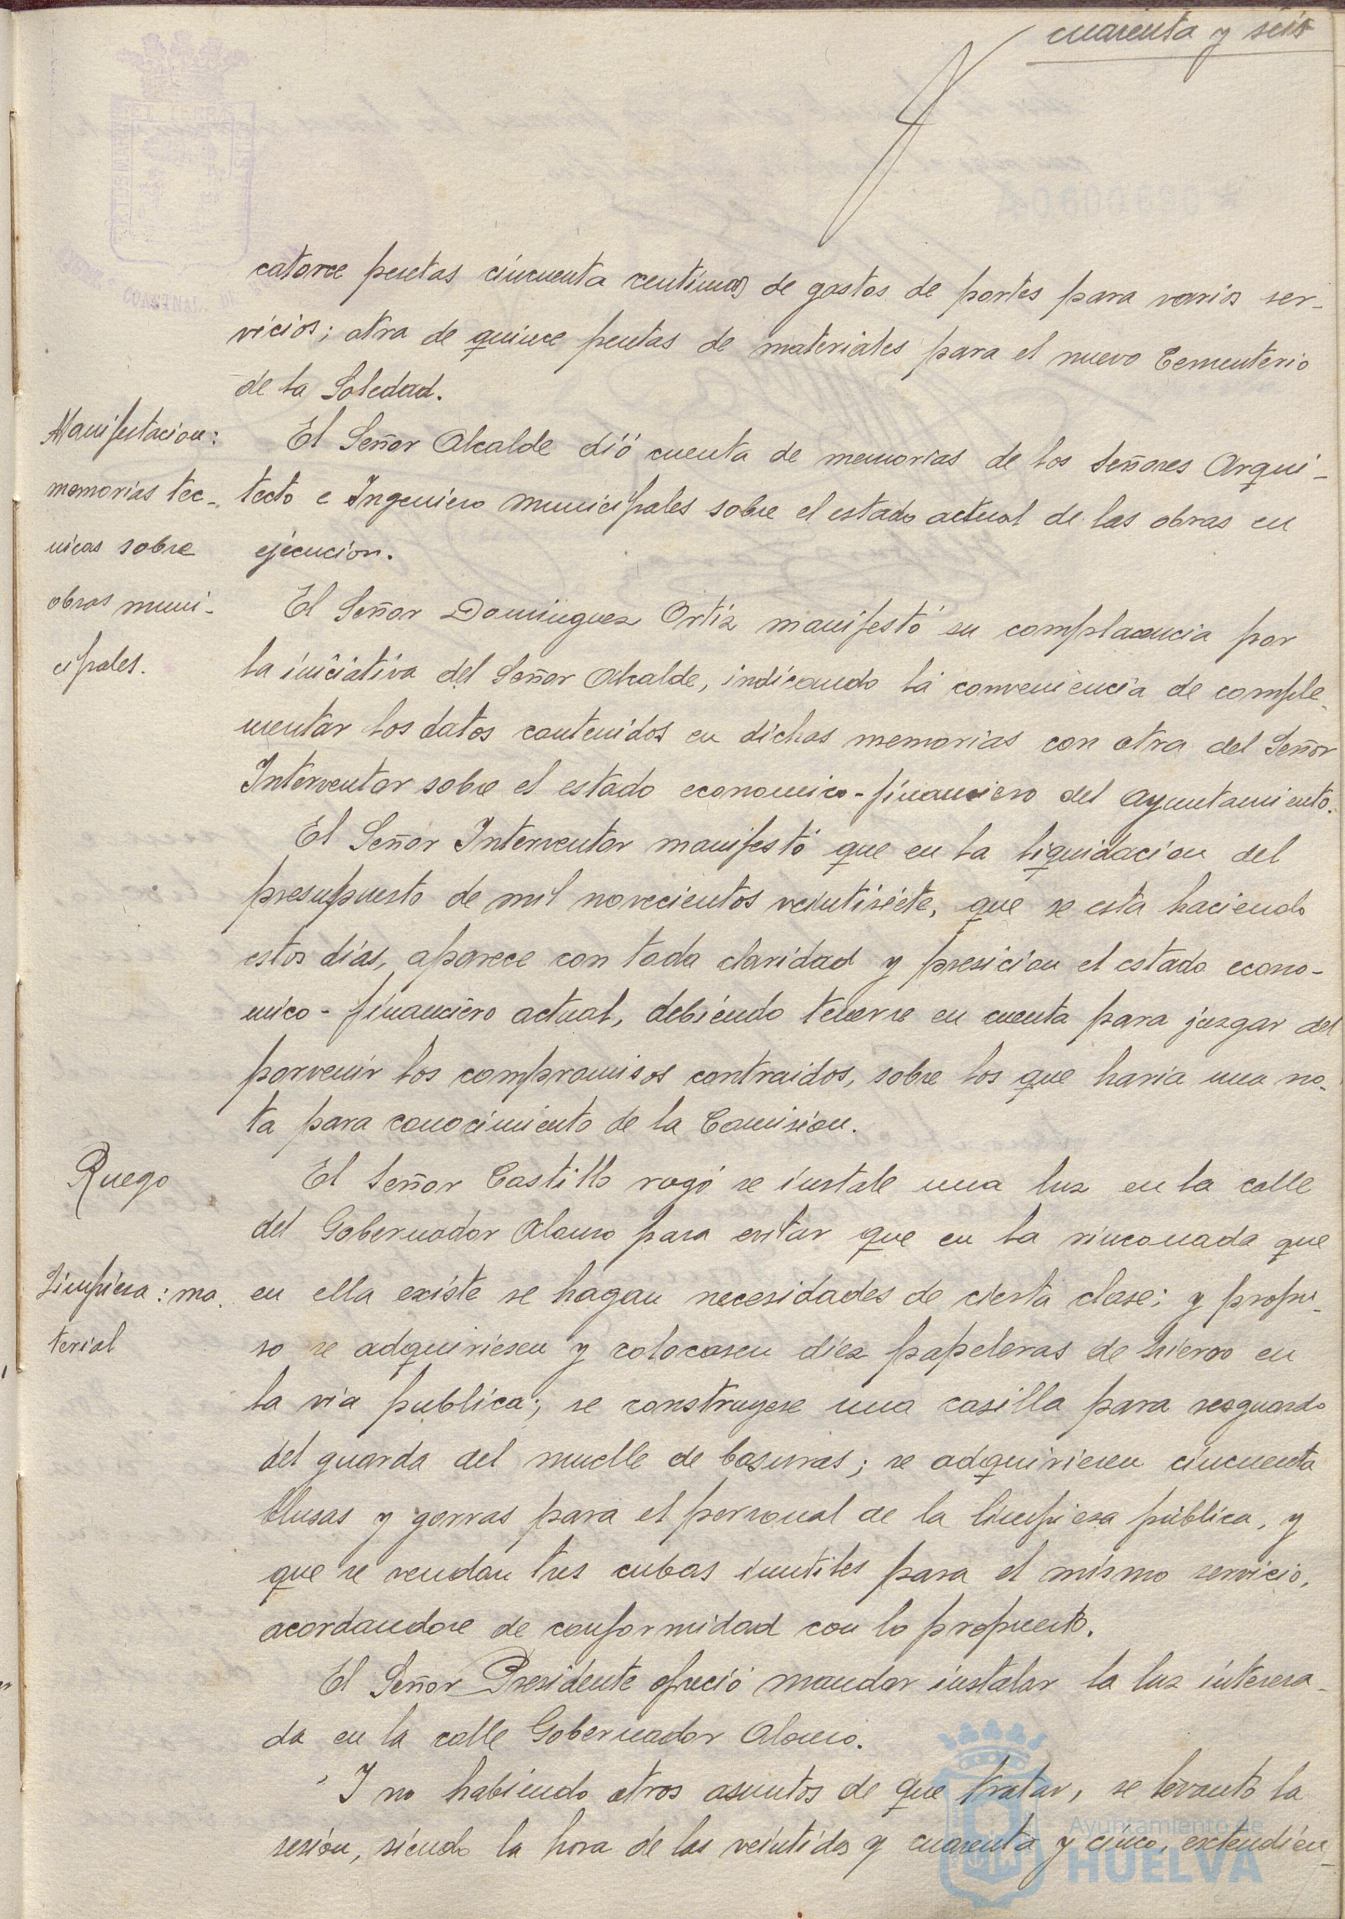 cuarenta y seis
catorce pesetas cincuenta centimos de gastos de portes para varios ser-
vicios; otra de quince pesetas de materiales para el nuevo Cementerio
de la Soledad.
Manifestacion:
memorias tec-
nicas sobre
obras muni-
cipales.
El Señor Alcalde dió cuenta de memorias de los Señores Arqui-
tecto e Ingeniero municipales sobre el estado actual de las obras en
ejecucion.
El Señor Dominguez Ortiz manifestó su complacencia por
la iniciativa del Señor Alcalde, indicando la conveniencia de comple-
mentar los datos contenidos en dichas memorias con otra del Señor
Interventor sobre el estado economico-financiero del Ayuntamiento.
El Señor Interventor manifestó que en la liquidacion del
presupuesto de mil novecientos veintisiete, que se esta haciendo
estos dias, aparece con toda claridad y presicion el estado econo-
mico-financiero actual, debiendo tenerse en cuenta para juzgar del
porvenir los compromisos contraidos, sobre los que haria una no-
ta para conocimiento de la Comision.
Ruego
El Señor Castillo rogó se instale una luz en la calle
del Gobernador Alonso para evitar que en la rinconada que
Limpieza: ma-
terial
en ella existe se hagan necesidades de cierta clase; y propu-
so se adquiriesen y colocasen diez papeleras de hierro en
la via publica; se construyese una casilla para resguardo
del guarda del muelle de basuras; se adquiriesen cincuenta
blusas y gorras para el personal de la limpieza pública, y
que se vendan tres cubas inutiles para el mismo servicio,
acordandose de conformidad con lo propuesto.
El Señor Presidente ofreció mandar instalar la luz interesa-
da en la calle Gobernador Alonso.
Y no habiendo otros asuntos de que tratar, se levantó la
sesion, siendo la hora de las veintidos y cuarenta y cinco, extendien-
Ayuntamiento de
HUELVA